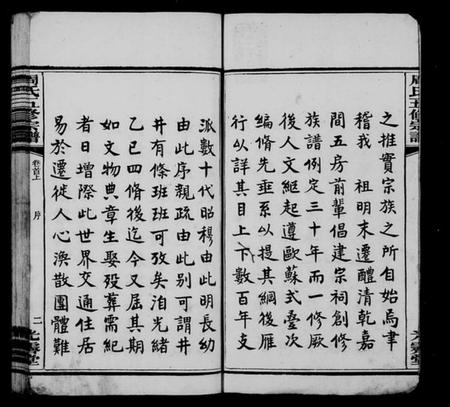 周氏五修宗譜
之推實宗族之所自始焉聿
稽我　祖明末遷醴清乾嘉
間五房前輩倡建宗祠創修
族譜例定三十年而一修厥
後人文絕起遵歐蘇式疊次
編脩先垂系以提其綱後雁
行以詳其目上下數百年支
派數十代昭穆由此明長幼
由此序親疏由此別可謂井
井有條班班可攷矣洎光緒
乙巳四脩後迄今又屆其期
如文物典章生娶歿葬需紀
者日增際此世界交通住居
易於遷徙人心渙散團體難
周氏五修宗譜
卷首上
序
二
光霽堂